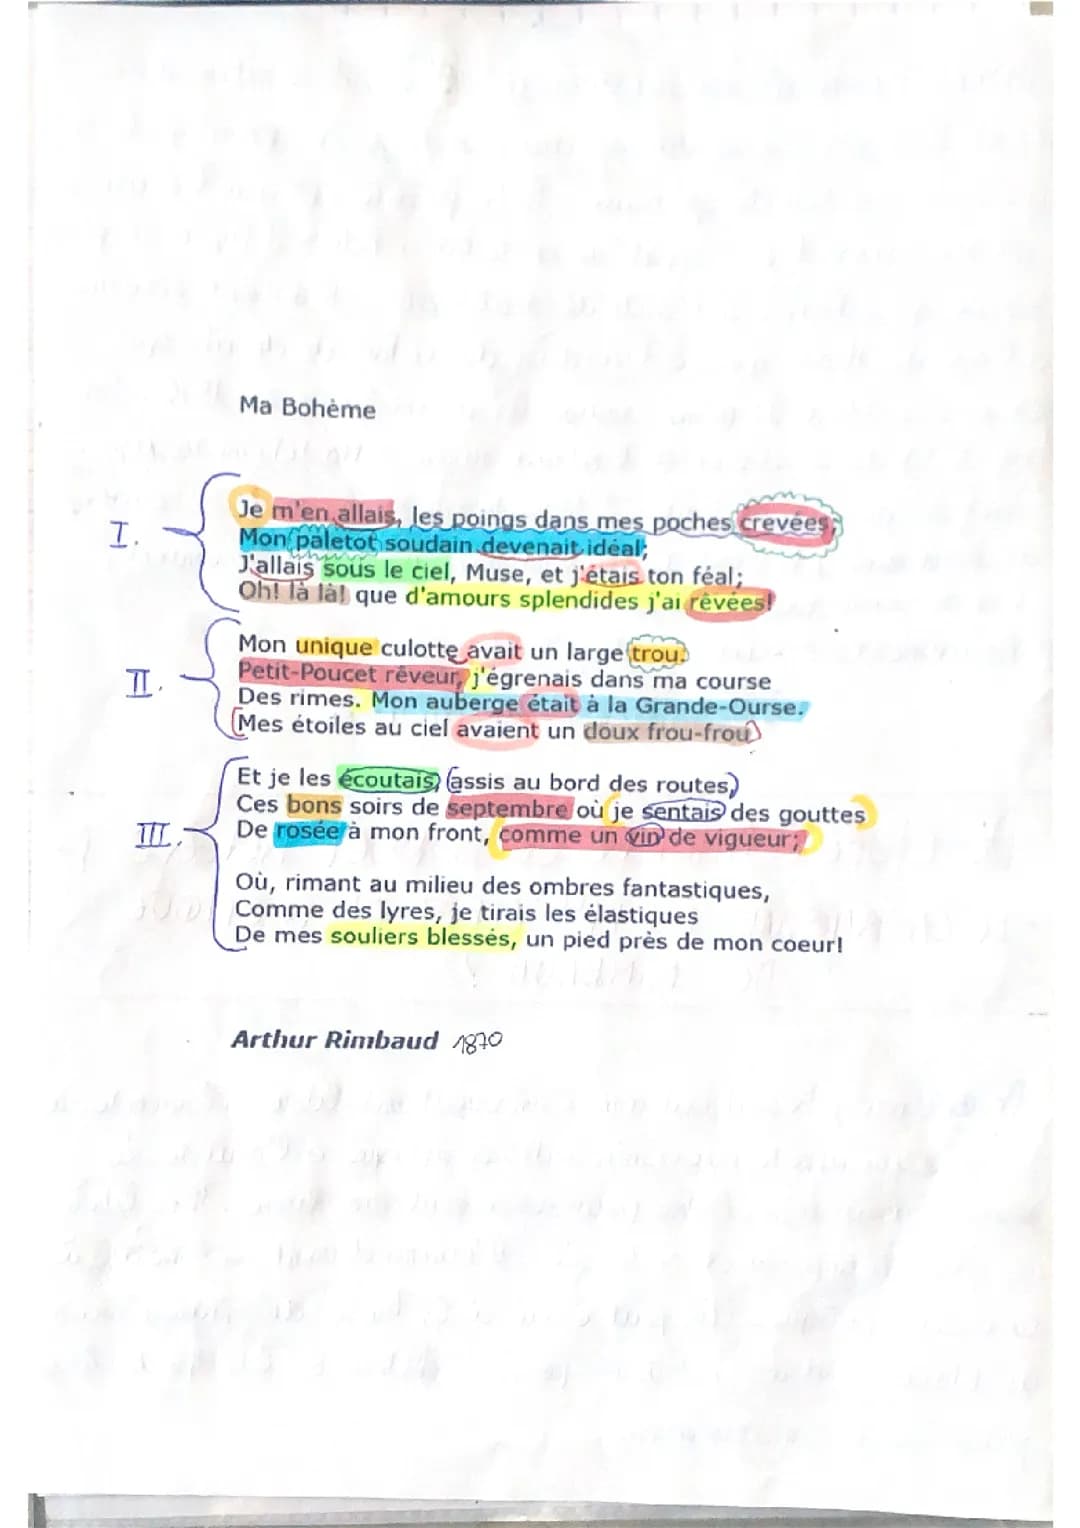 Ma Bohème
I.
Je m'en allais, les poings dans mes poches crevées;
Mon paletot soudain devenait idéal;
J'allais sous le ciel, Muse, et j'étais ton féal;
Oh! là là! que d'amours splendides j'ai rêvées!
II.
Mon unique culotte avait un large trou.
Petit-Poucet rêveur, j'égrenais dans ma course
Des rimes. Mon auberge était à la Grande-Ourse.
Mes étoiles au ciel avaient un doux frou-frou
III.
Et je les écoutais, assis au bord des routes,
Ces bons soirs de septembre où je sentais des gouttes
De rosée à mon front, comme un vin de vigueur;
Où, rimant au milieu des ombres fantastiques,
Comme des lyres, je tirais les élastiques
De mes souliers blessés, un pied près de mon coeur!
Arthur Rimbaud 1870